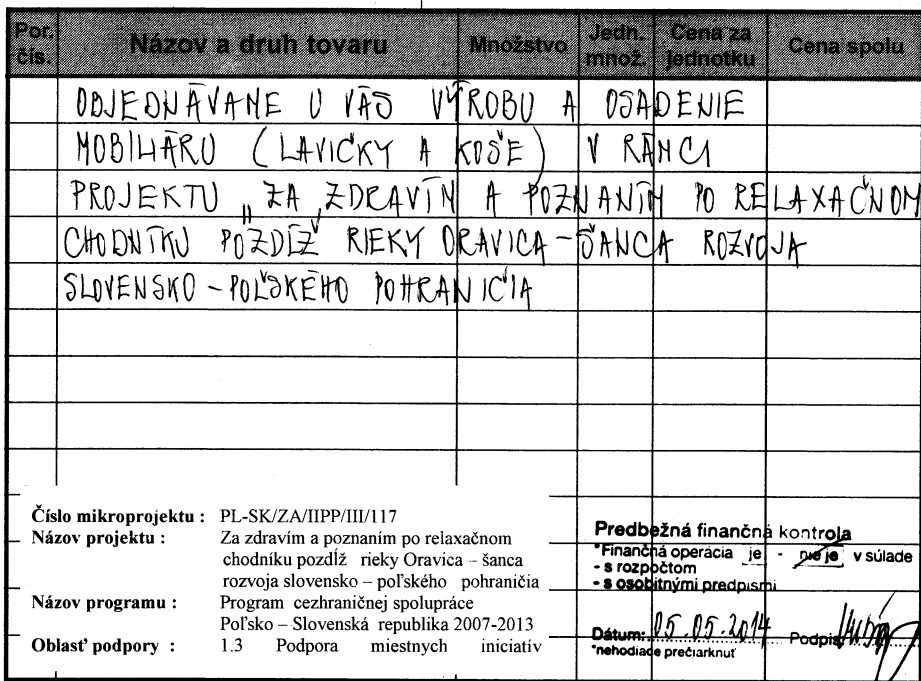 Por. čís. Názov a druh tovaru Množstvo Jedn. množ. Cena za jednotku Cena spolu
OBJEDNÁVAME U VÁS VÝROBU A OSADENIE
MOBILIÁRU (LAVIČKY A KOŠE) V RÁMCI
PROJEKTU „ZA ZDRAVÍM A POZNANÍM PO RELAXAČNOM
CHODNÍKU POZDĹŽ RIEKY ORAVICA - ŠANCA ROZVOJA
SLOVENSKO - POĽSKÉHO POHRANIČIA
Číslo mikroprojektu : PL-SK/ZA/IIPP/III/117
Názov projektu : Za zdravím a poznaním po relaxačnom
chodníku pozdĺž rieky Oravica – šanca
rozvoja slovensko – poľského pohraničia
Názov programu : Program cezhraničnej spolupráce
Poľsko – Slovenská republika 2007-2013
Oblasť podpory : 1.3 Podpora miestnych iniciatív
Predbežná finančná kontrola
*Finančná operácia je - nie je v súlade
- s rozpočtom
- s osobitnými predpismi
Dátum: 05.05.2014 Podpis
*nehodiace prečiarknuť